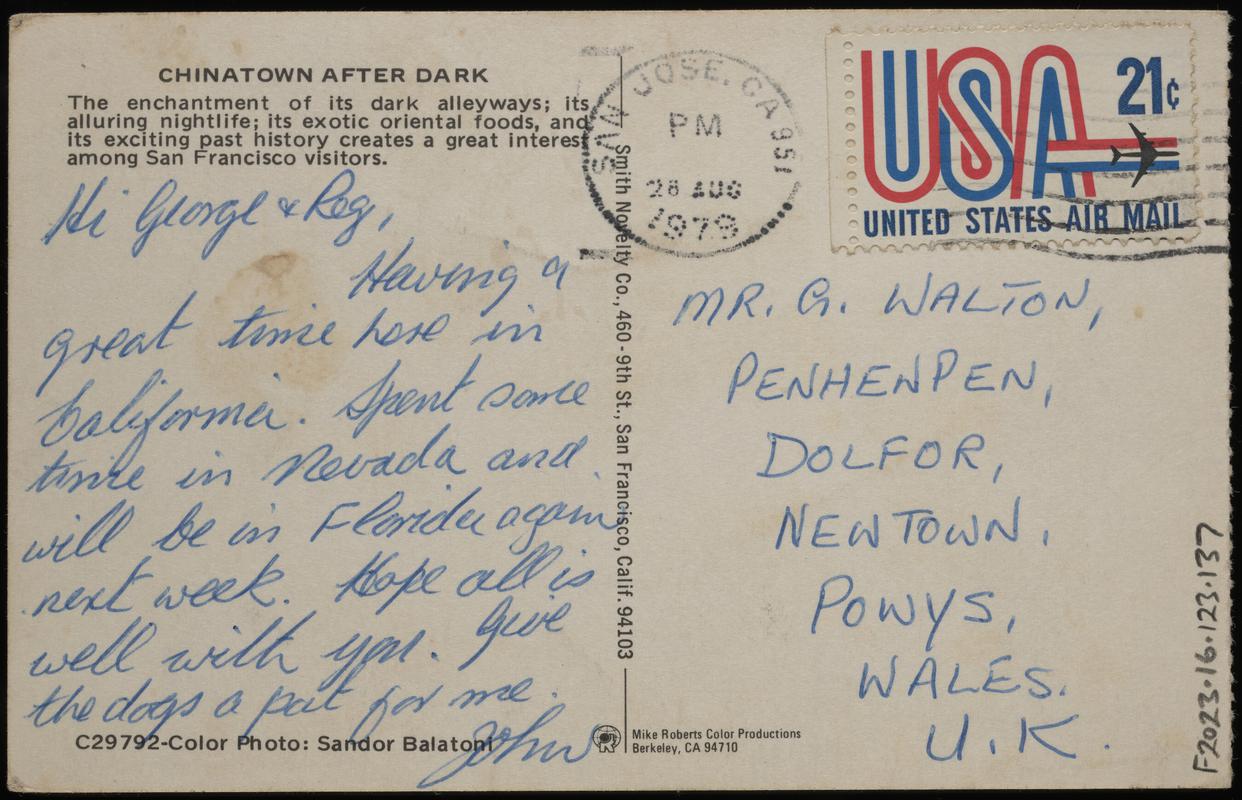 CHINATOWN AFTER DARK
The enchantment of its dark alleyways; its
alluring nightlife; its exotic oriental foods, and
its exciting past history creates a great interest
among San Francisco visitors.
Hi George & Reg,
Having a
great time here in
California. Spent some
time in Nevada and
will be in Florida again
next week. Hope all is
well with you. Give
the dogs a pat for me.
John
C29792-Color Photo: Sandor Balatoni
Smith Novelty Co., 460 - 9th St., San Francisco, Calif. 94103
Mike Roberts Color Productions
Berkeley, CA 94710
SAN JOSE, CA 951
PM
28 AUG
1979
USA 21¢
UNITED STATES AIR MAIL
MR. G. WALTON,
PENHENPEN,
DOLFOR,
NEWTOWN.
POWYS,
WALES.
U.K.
F2023.16.123.137